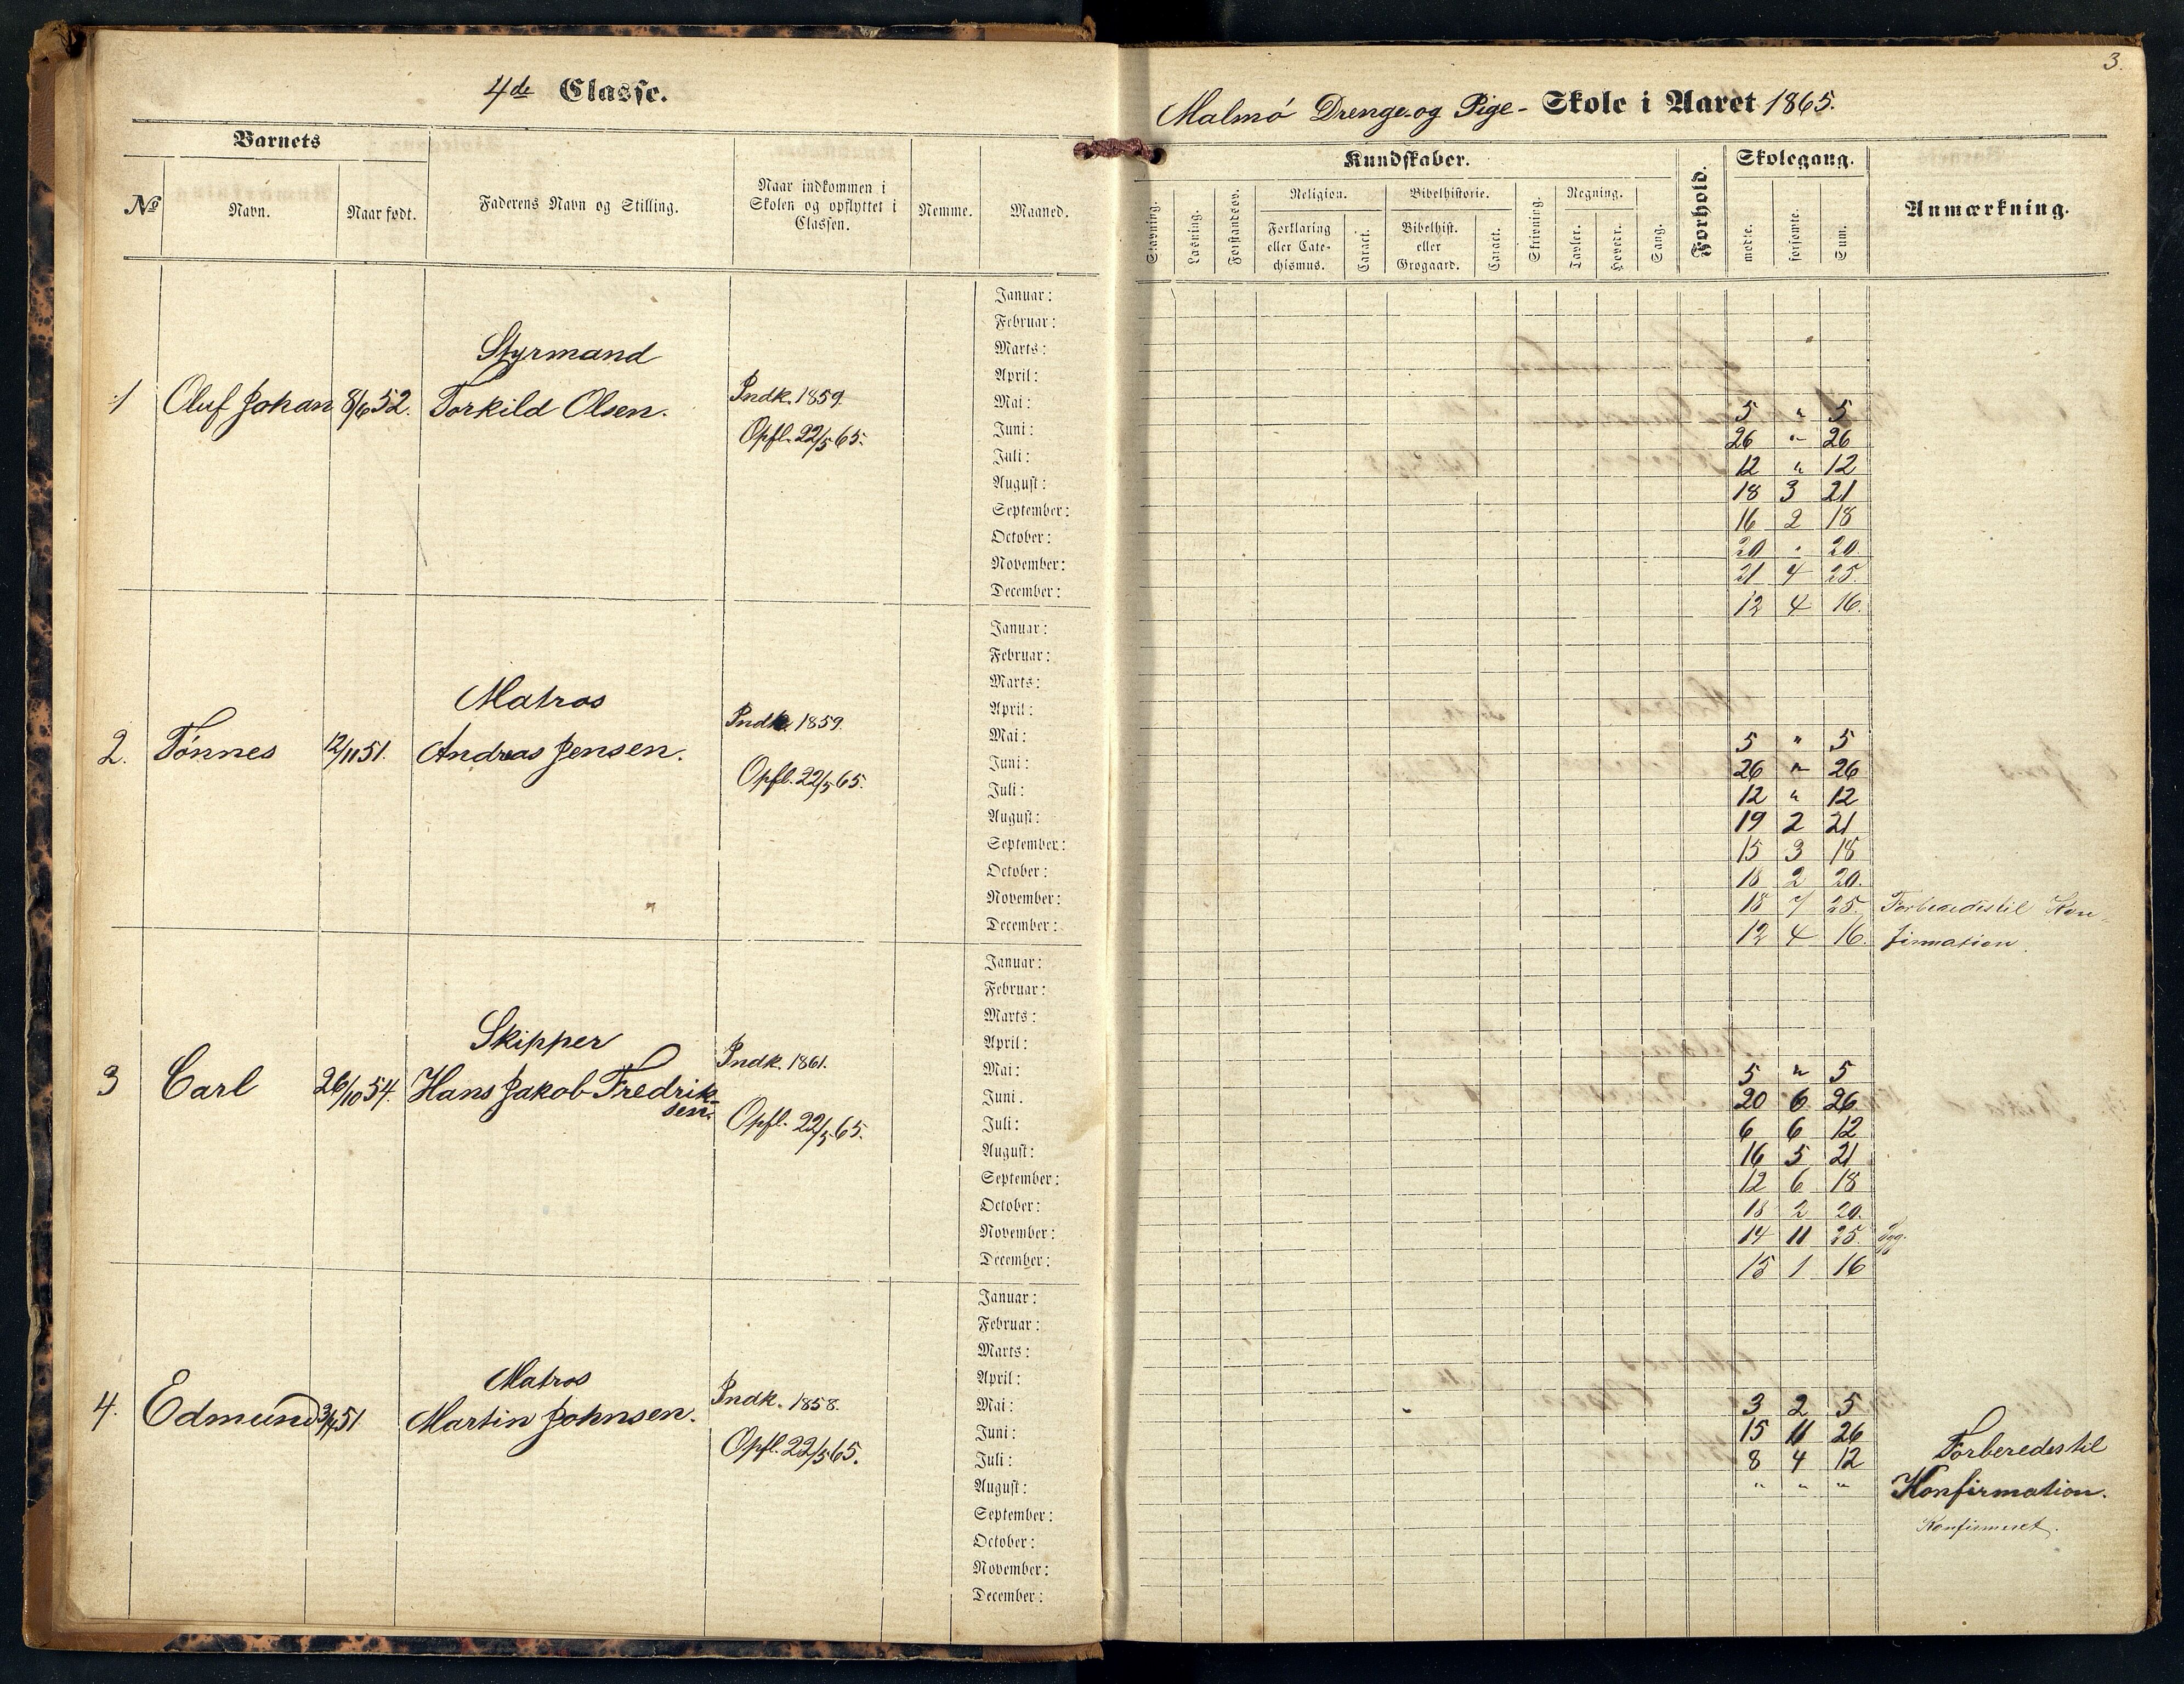 4de Classe.
Barnets
№
Navn.
Naar født.
Faderens Navn og Stilling.
Naar indkommen i
Skolen og opflyttet i
Classen.
Nemme.
Maaned.
3.
Malmø Drenge- og Pige- Skole i Aaret 1865.
Kundskaber.
Skolegang.
Stavning.
Læsning.
Forstandsøv.
Religion.
Forklaring
eller Cate-
chismus.
Caract.
Bibelhistorie.
Bibelhist.
eller
Grøgaard.
Caract.
Skrivning.
Regning.
Tavler.
Hovedr.
Sang.
Forhold.
mødte.
forsømte.
Sum.
Anmærkning.
Januar:
Februar:
Styrmand Marts:
April:
1 Oluf Johan 8/6 52. Torkild Olsen. Indk. 1859. Mai: 5 " 5
Opfl. 22/5 65. Juni: 26 " 26
Juli: 12 " 12
August: 18 3 21
September: 16 2 18
October: 20 " 20
November: 21 4 25.
December: 12 4 16.
Januar:
Februar:
Marts:
Matros April:
2. Tønnes 12/11 51. Andreas Jensen. Indk. 1859. Mai: 5 " 5
Opfl. 22/5 65. Juni: 26 " 26
Juli: 12 " 12
August: 19 2 21
September: 15 3 18
October: 18 2 20.
November: 18 7 25. Forberedes til Kon-
December: 12 4 16. firmation.
Januar:
Februar:
Marts:
Skipper April:
3 Carl 26/10 54. Hans Jakob Fredrik- Indk. 1861. Mai: 5 " 5
sen. Opfl. 22/5 65. Juni. 20 6 26
Juli: 6 6 12
August: 16 5 21
September: 12 6 18
October: 18 2 20.
November: 14 11 25.
December: 15 1 16
Januar:
Februar:
Marts:
Matros April:
4. Edmund 51 Martin Johnsen. Indk. 1858. Mai: 3 2 5
Opfl. 22/5 65. Juni: 15 11 26
Juli: 8 4 12 Forberedes til
August: " " " Konfirmation.
September: Konfirmeret.
October:
November:
December: